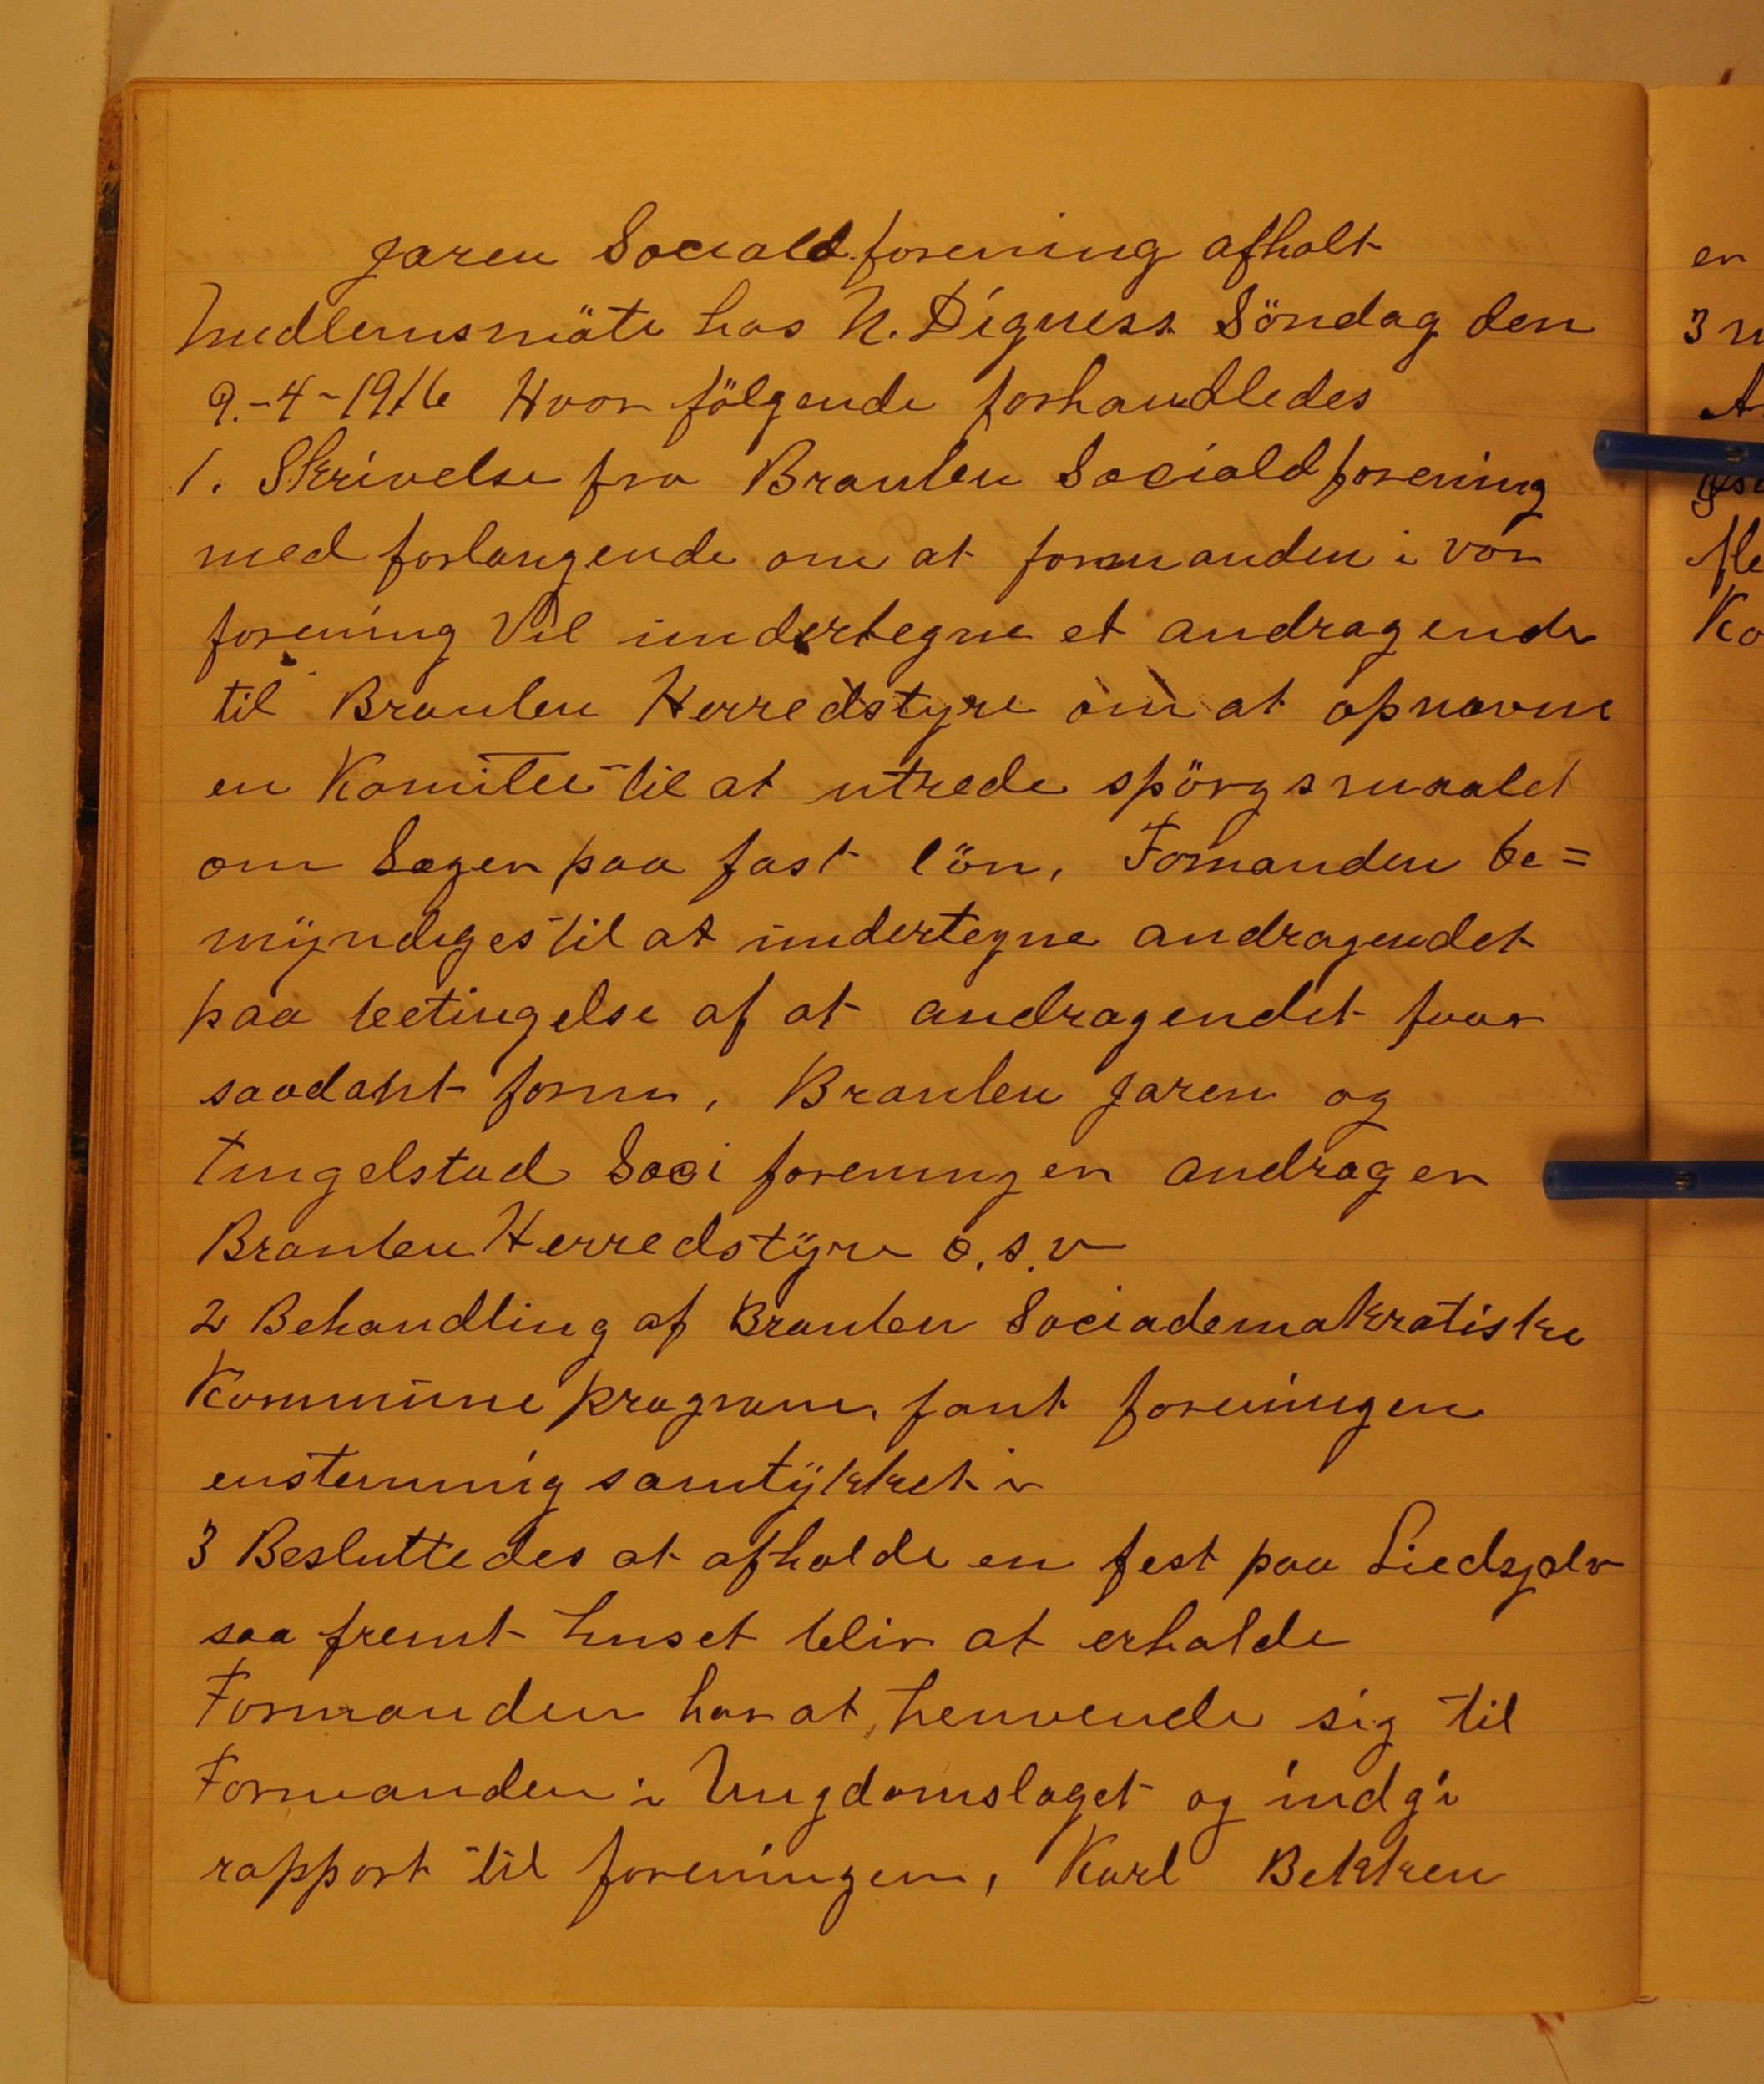 Jaren Sociald. forening afholt
medlemsmöte hos N. Dignes Söndag den
9.-4-1916 Hvor fölgende forhandledes
1. Skrivelse fra Branbu Sociald forening
med forlangende om at formanden i vor
forening Vil undertegne et andragende
til Branbu Herredstyre om at opnævne
en Komitee til at utrede spörgsmaalet
om Læger paa fast lön, Fomanden be=
myndiges til at undertegne andragendet
paa betingelse af at andragendet faar
saadant form, Branbu Jaren og
Tingelstad Soci foreninger andrager
Branbu Herredstyre o.s.v
2 Behandling af Branbu Sociademokratiske
Kommune program, fant foreningen
enstemmig samtykket i
3 Besluttedes at afholde en fest paa Liedsjælv
saa fremt huset bliv at erholde
Formanden har at henvende sig til
Formanden i Ungdomslaget og indgi
rapport til foreningen, Karl Bekken
en
3
fle
Ko